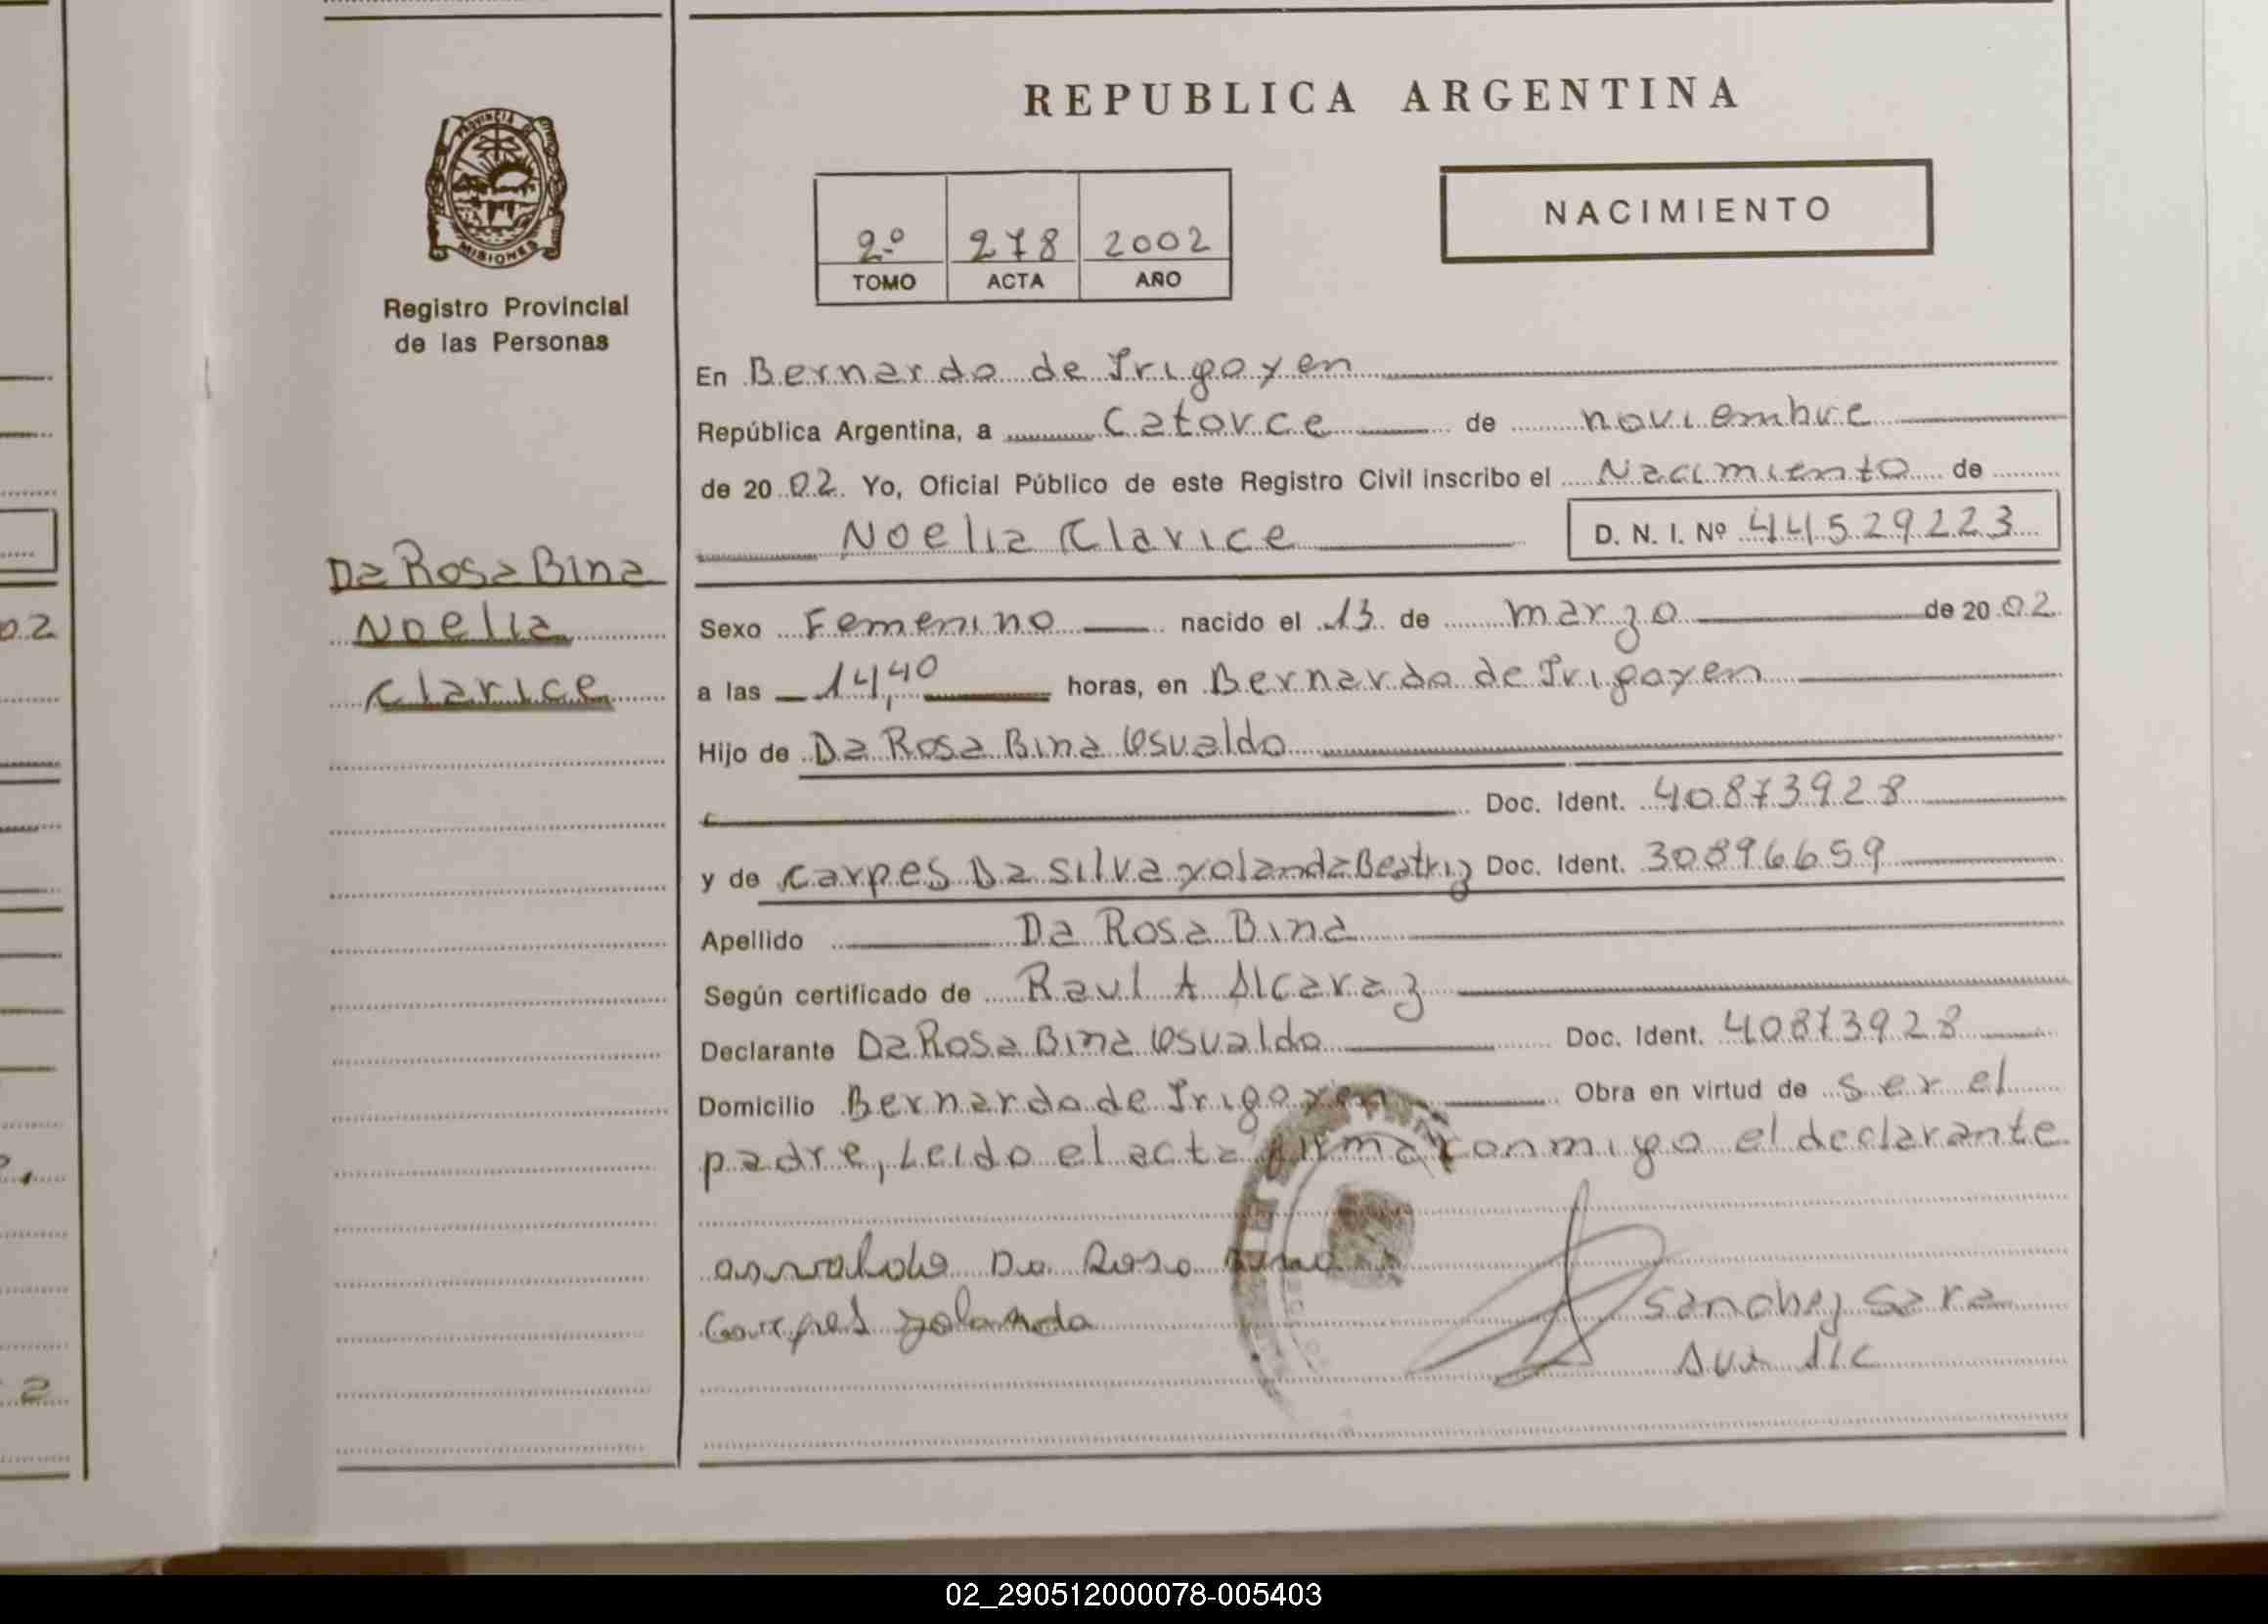 REPUBLICA ARGENTINA
PROVINCIA DE
MISIONES
Registro Provincial
de las Personas
2º 278 2002
TOMO ACTA AÑO
NACIMIENTO
En Bernardo de Irigoyen
República Argentina, a catorce de noviembre
de 2002. Yo, Oficial Público de este Registro Civil inscribo el Nacimiento de
Noelia Clarice D. N. I. Nº 44529223
Da Rosa Bina
Noelia
Clarice
Sexo Femenino nacido el 13 de marzo de 2002
a las 14,40 horas, en Bernardo de Irigoyen
Hijo de Da Rosa Bina Osvaldo
Doc. Ident. 40873928
y de Carpes Da Silva Yolanda Beatriz Doc. Ident. 30896659
Apellido Da Rosa Bina
Según certificado de Raul A Alcaraz
Declarante Da Rosa Bina Osvaldo Doc. Ident. 40873928
Domicilio Bernardo de Irigoyen Obra en virtud de ser el
padre, Leido el acta firma conmigo el declarante
osvaldo Da Rosa Bina
Carpes Yolanda
Sanchez Sara
02
2
02_290512000078-005403